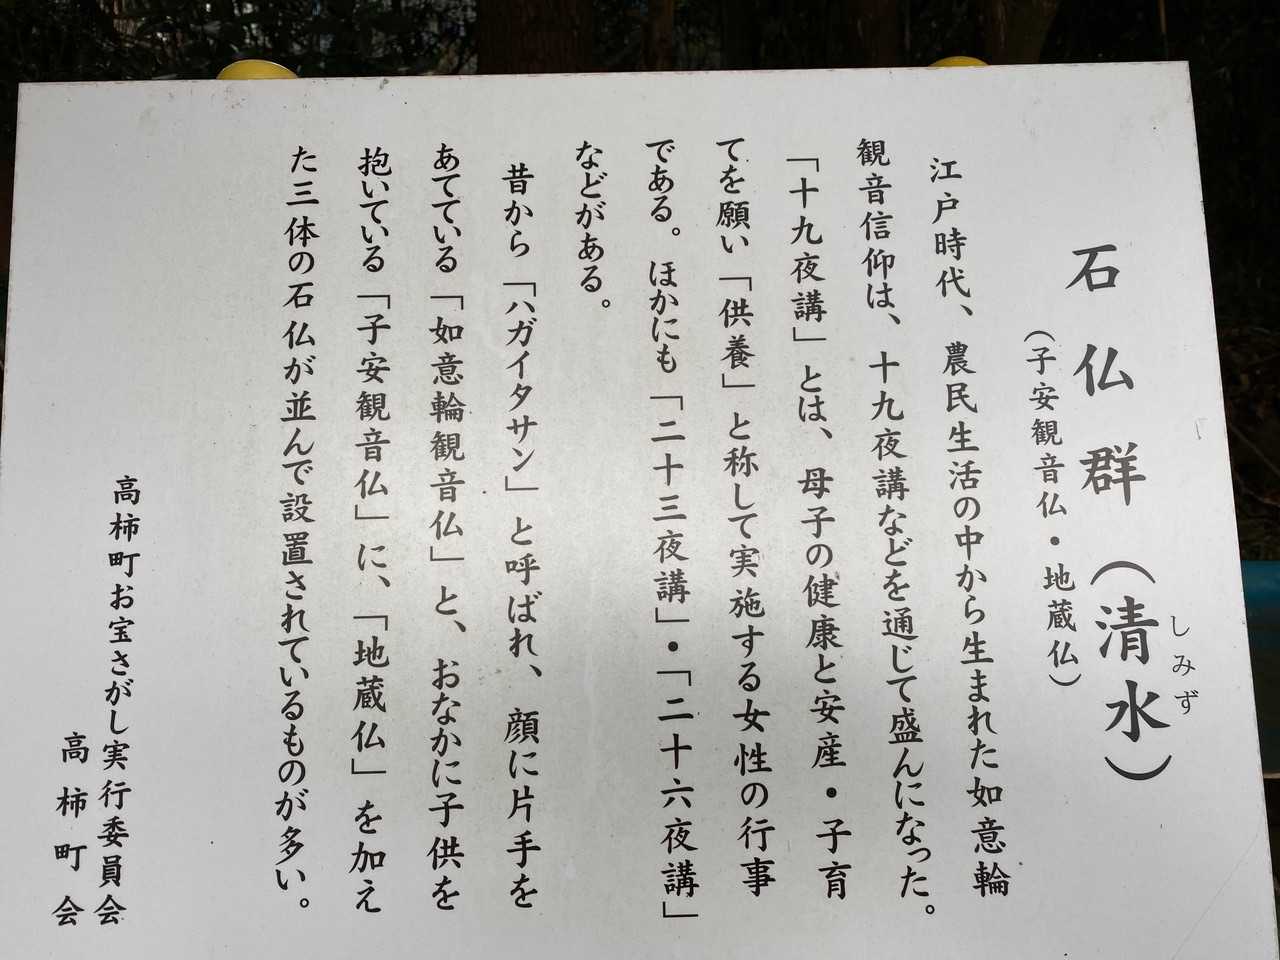 石仏群（清水）
しみず
（子安観音仏・地蔵仏）
江戸時代、農民生活の中から生まれた如意輪
観音信仰は、十九夜講などを通じて盛んになった。
「十九夜講」とは、母子の健康と安産・子育
てを願い「供養」と称して実施する女性の行事
である。ほかにも「二十三夜講」・「二十六夜講」
などがある。
昔から「ハガイタサン」と呼ばれ、顔に片手を
あてている「如意輪観音仏」と、おなかに子供を
抱いている「子安観音仏」に、「地蔵仏」を加え
た三体の石仏が並んで設置されているものが多い。
高柿町お宝さがし実行委員会
高柿町会